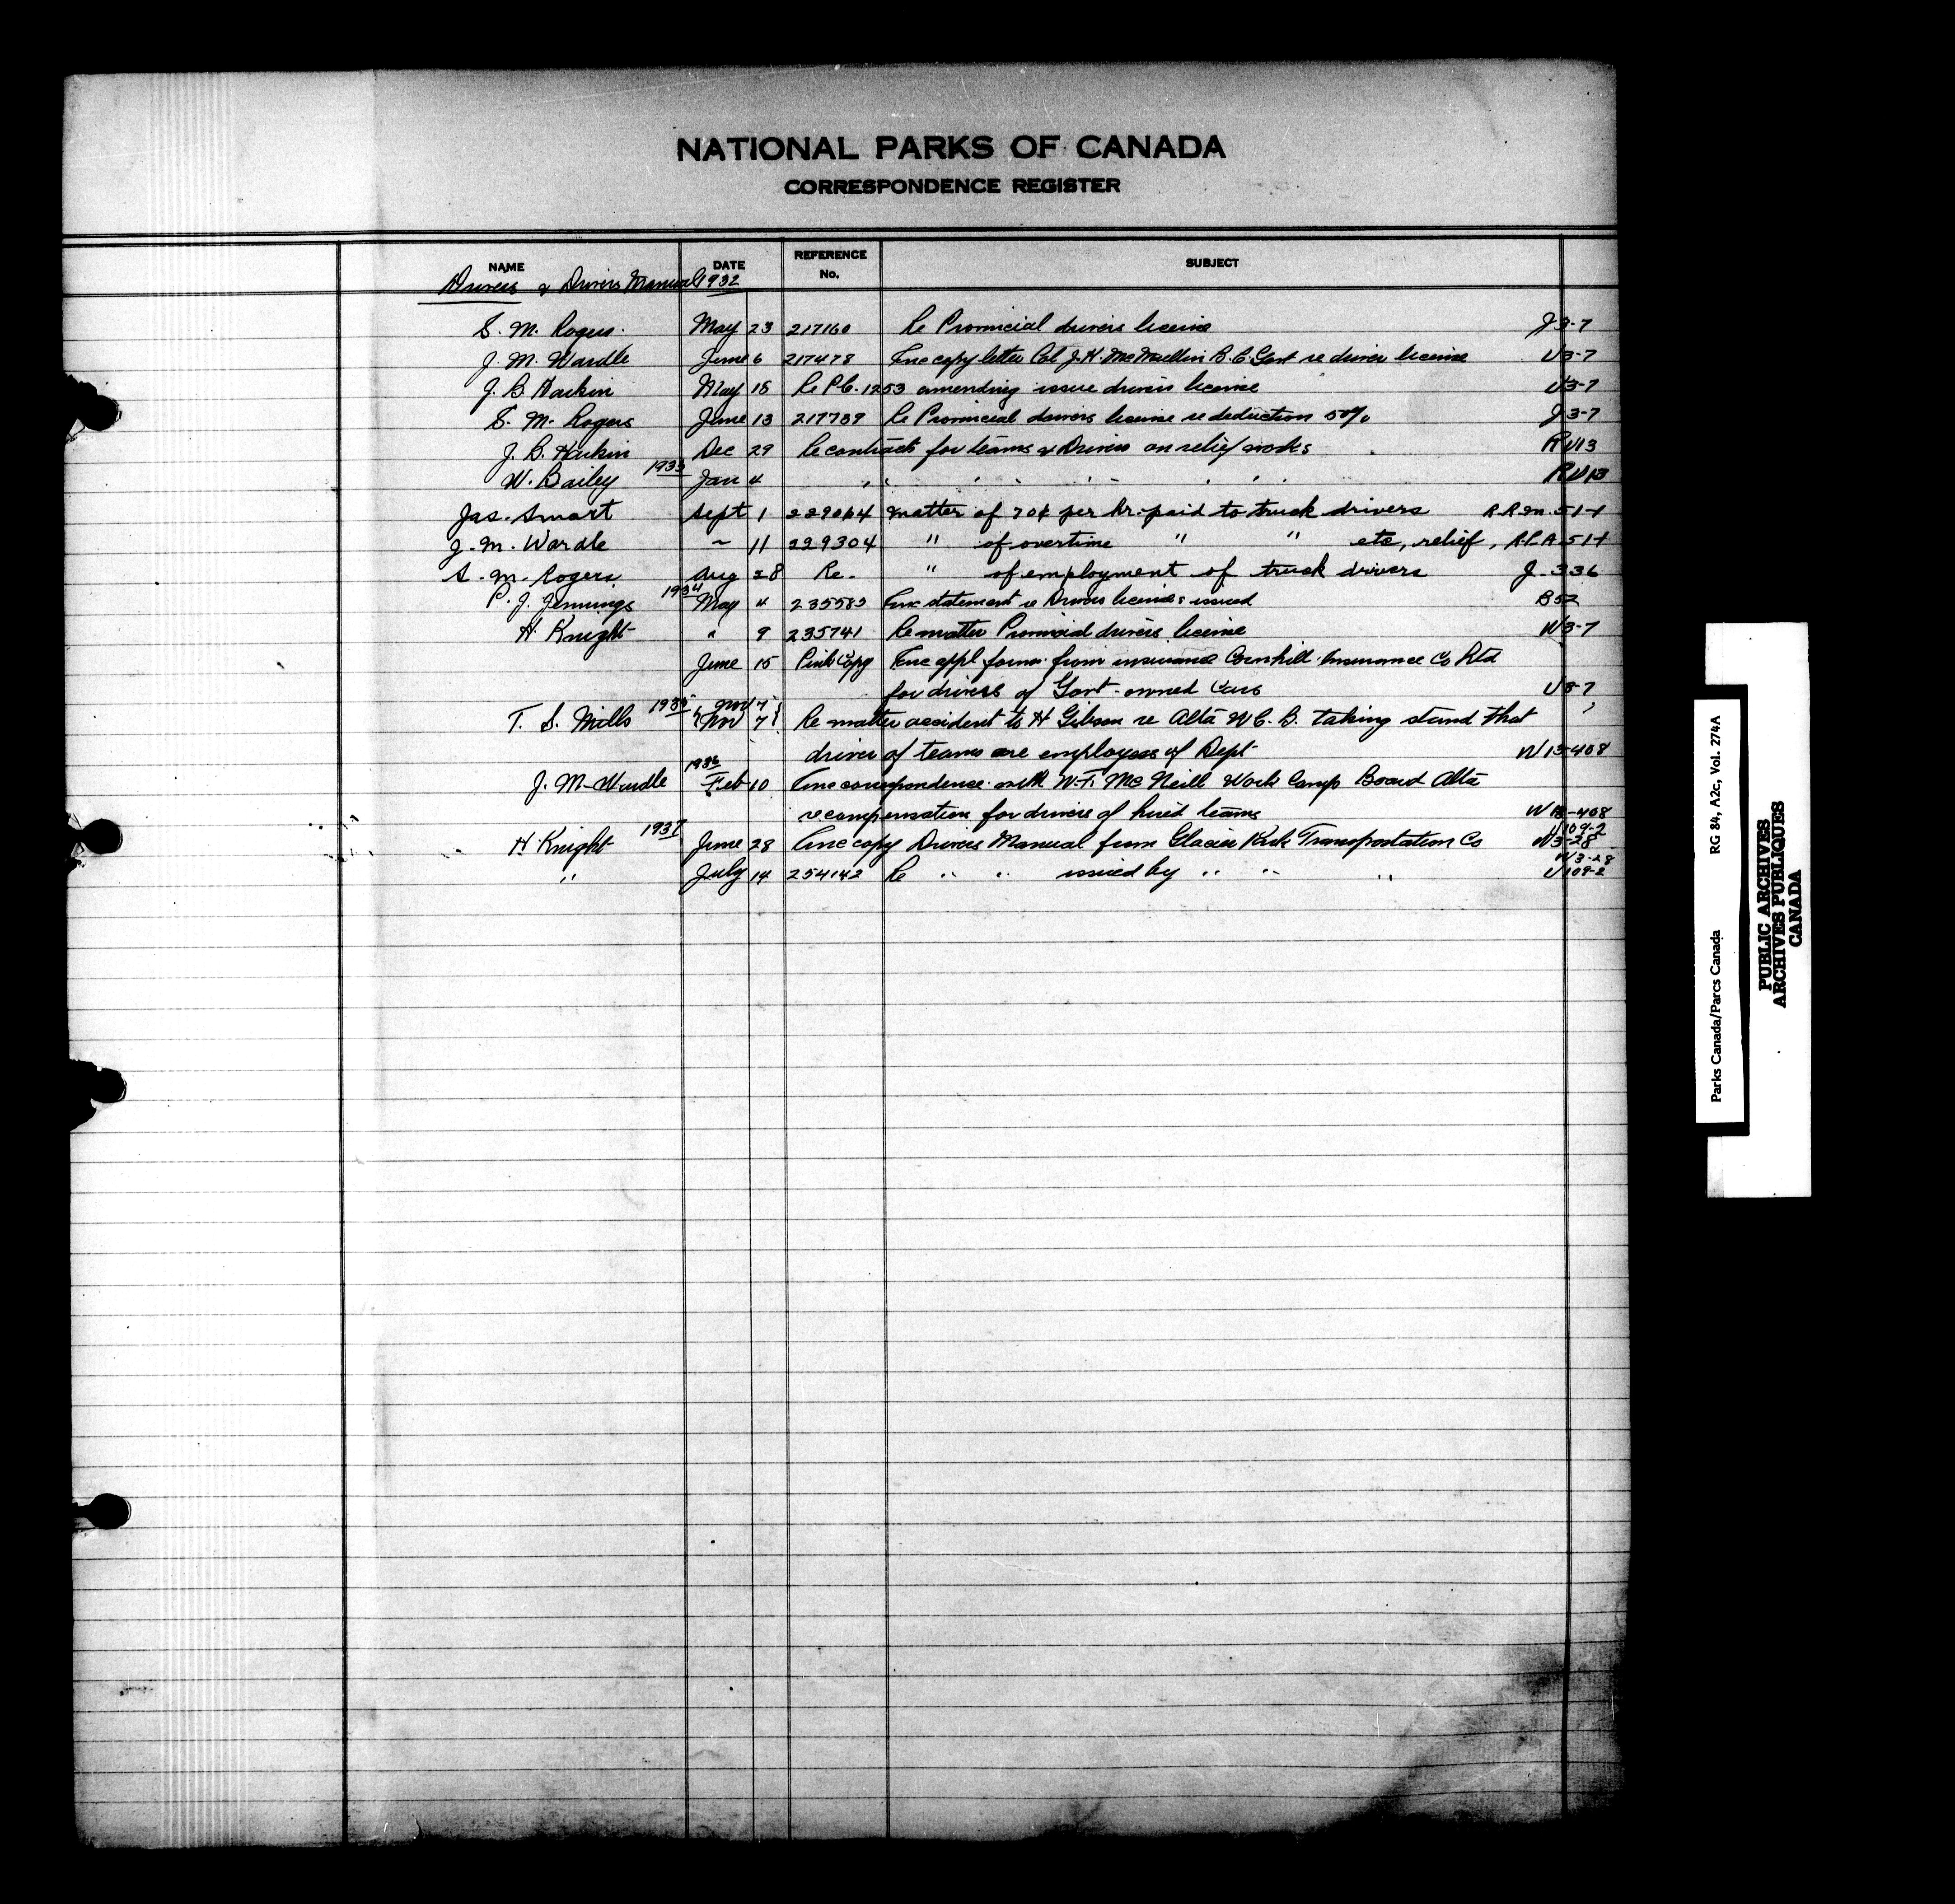 NATIONAL PARKS OF CANADA
CORRESPONDENCE REGISTER
NAME DATE REFERENCE No. SUBJECT
Drivers & Drivers Manual 1932
S. M. Rogers. May 23 217160 Re Provincial drivers license J3-7
J. M. Wardle June 6 217478 Enc copy letter Col J. H. McMullin B.C. Govt re driver license U3-7
J. B. Harkin May 18 Re P.C. 1253 amending issue drivers license U3-7
S. M. Rogers June 13 217789 Re Provincial drivers license re deduction 50% J3-7
J. B. Harkin Dec 29 Re contracts for teams & Drivers on relief works RU13
W. Bailey 1933 Jan 4 " " " " " " RU13
Jas. Smart Sept 1 229064 matter of 70¢ per hr. paid to truck drivers R.R.M. 51-1
J. M. Wardle " 11 229304 " of overtime " " etc, relief, 51-1
S. M. Rogers Aug 28 Re. " of employment of truck drivers J. 336
P. J. Jennings 1934 May 4 Enc statement re Drivers licenses issued B52
H. Knight " 9 235741 Re matter Provincial drivers license W3-7
June 15 Pink Copy Enc appl forms from insurance Cornhill Insurance Co Ltd
for drivers of Govt-owned Cars U3-7
T. S. Mills 1935 Nov 7 Re matter accident to H Gibson re Alta W.C.B. taking stand that
driver of teams are employees of Dept W13-408
J. M. Wardle 1936 Feb 10 Enc correspondence with W.F. McNeill Work Camp Board Alta
re compensation for drivers of hired teams W13-408
H Knight 1937 June 28 Enc copy Drivers Manual from Glacier Park Transportation Co U109-2 W3-28
" July 14 254142 Re " " issued by " " " W3-28 U109-2
Parks Canada/Parcs Canada RG 84, A2c, Vol. 274A
PUBLIC ARCHIVES
ARCHIVES PUBLIQUES
CANADA